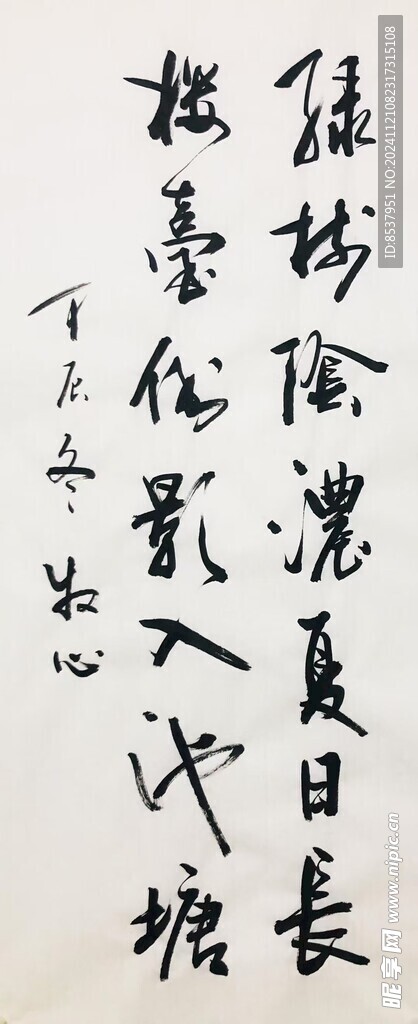 緑树陰濃夏日長
楼臺倒影入池塘
甲辰冬 牧心
ID:8537951 NO:20241121082317315108
昵享网 www.nipic.cn